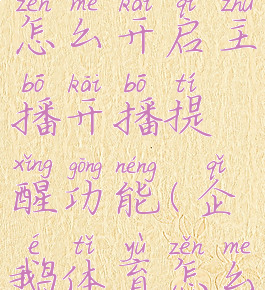 zěn me kāi qǐ zhǔ
怎么开启主
bō kāi bō tí
播开播提
xǐng gōng néng qǐ
醒功能(企
é tǐ yù zěn me
鹅体育怎么